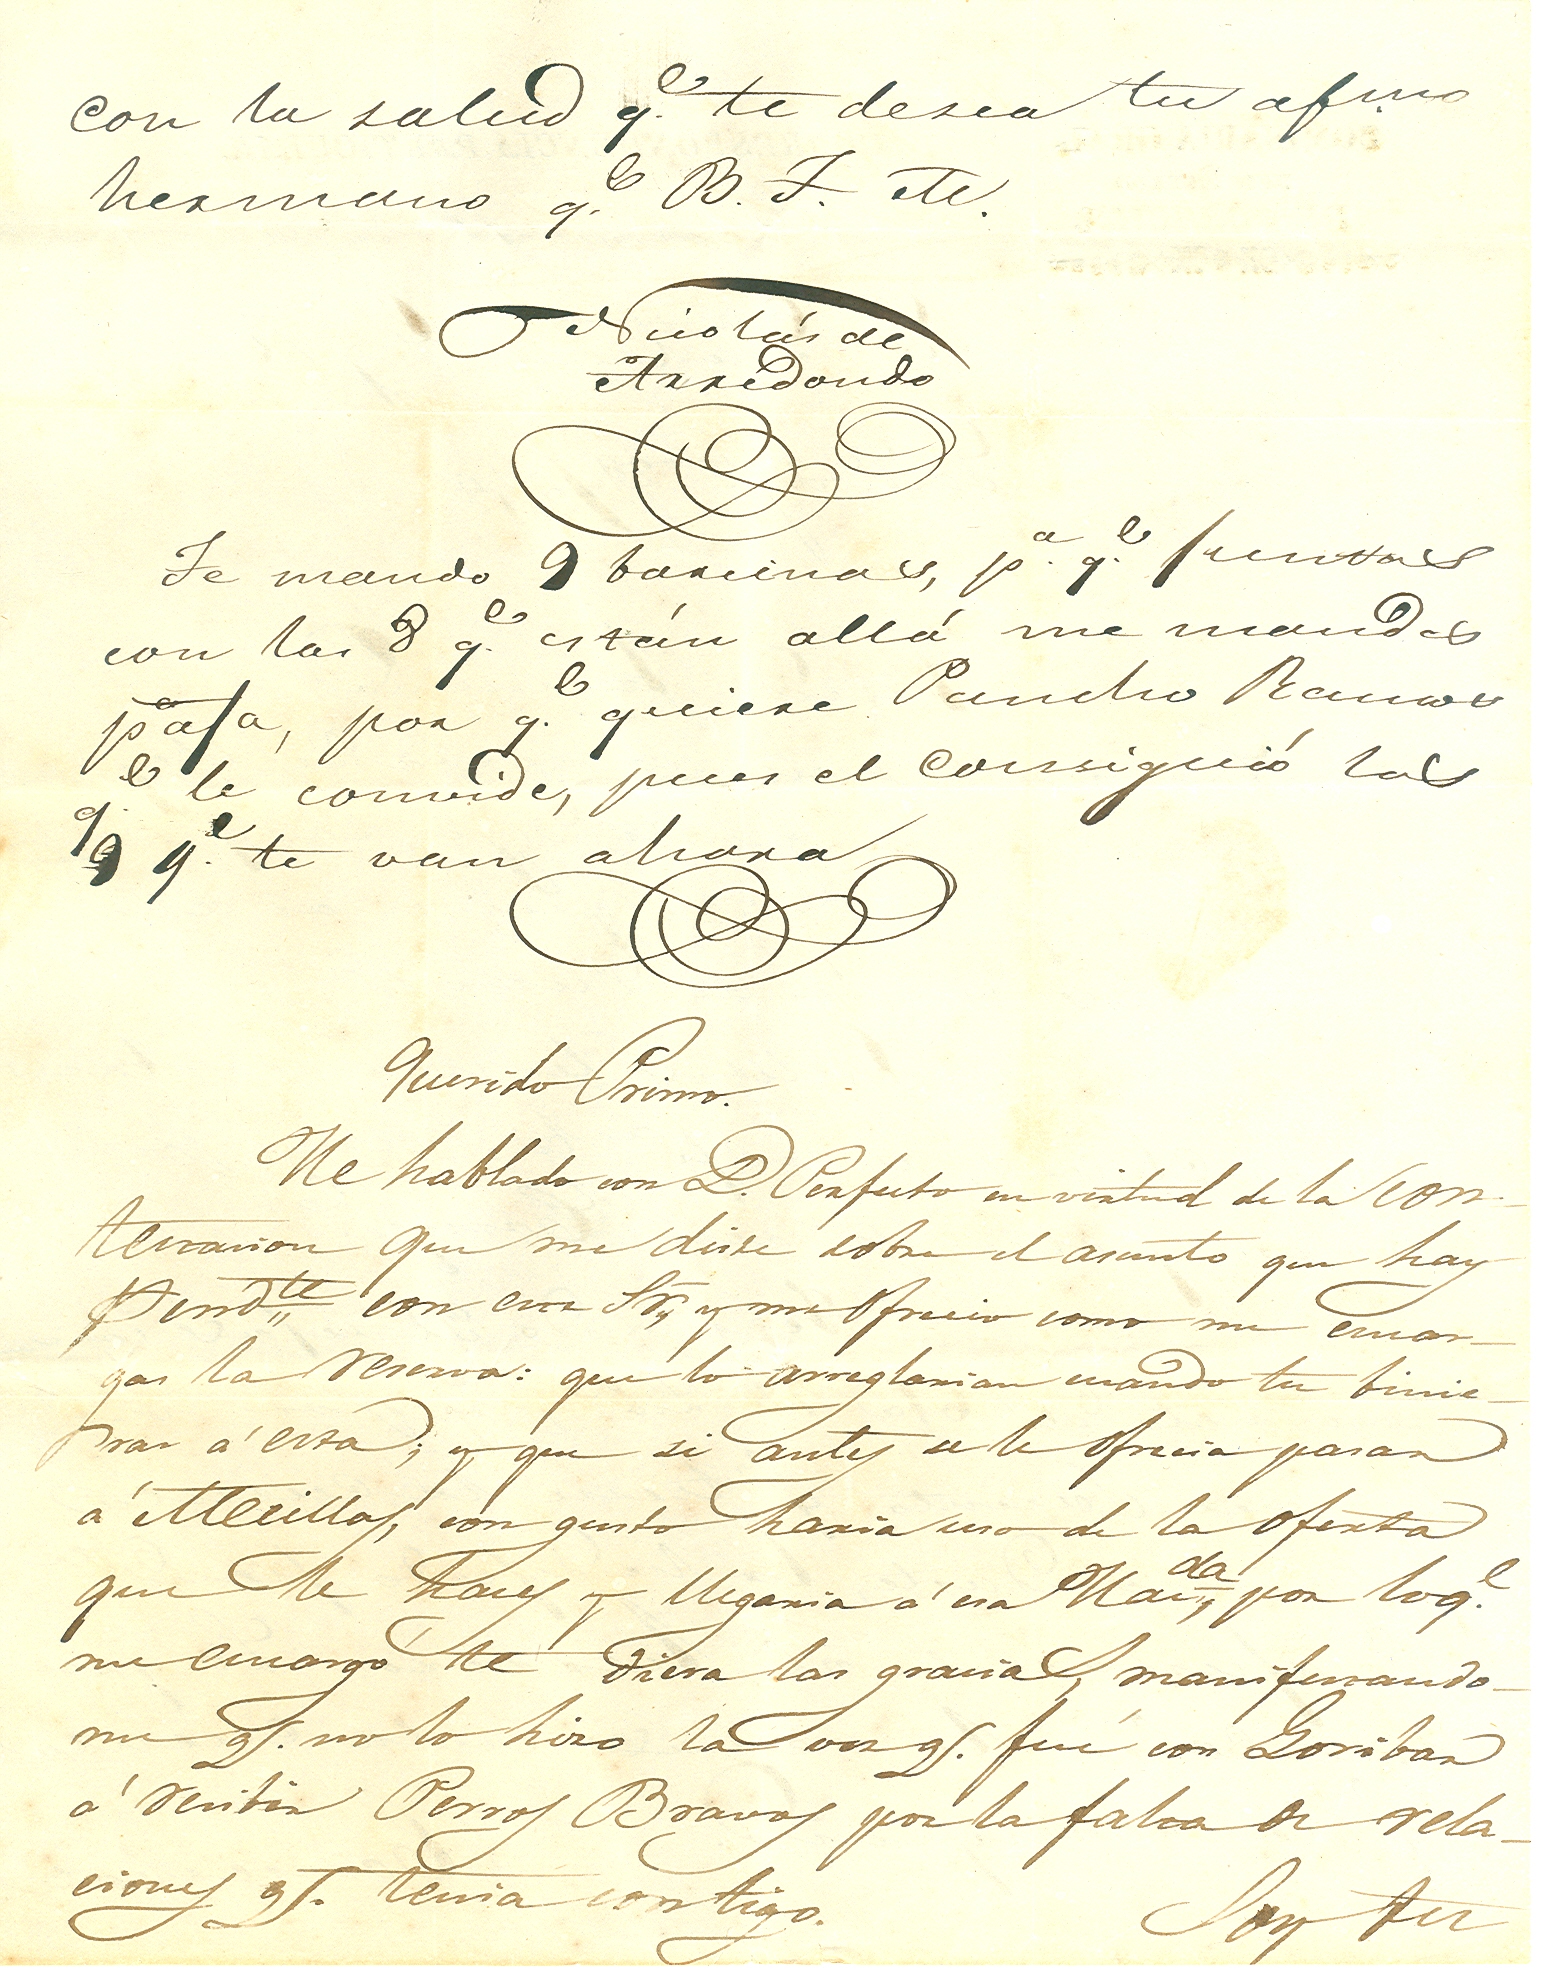 con la salud q.e te desea tu afmo
hermano q.e B. T. M.
Nicolás de
Arredondo
Te mando 9 barcinas, p.a q.e juntas
con las 8 q.e están allá me mandes
paja, por q.e quiere Pancho Ramos
q.e le convide, pues el consiguió las
9 q.e te van ahora
Querido Primo.
He hablado con D. Perfecto en virtud de la con-
testacion que me diste sobre el asunto que hay
Pend.te con ese Sr. y me ofrecio como me encar-
gas la reserva: que lo arreglarian cuando tu binie-
ras á esta; y que si antes se le ofrecia pasar
á Mecillas, con gusto haria uso de la oferta
que le haces y llegaria á esa Hac.da, por loq.e
me encargó te diera las gracias, manifestando-
me q.e no lo hizo la vez q.e fué con Goribar
á recibir Perros Bravos por la falta de rela-
ciones q.e tenia contigo.
Soy tu